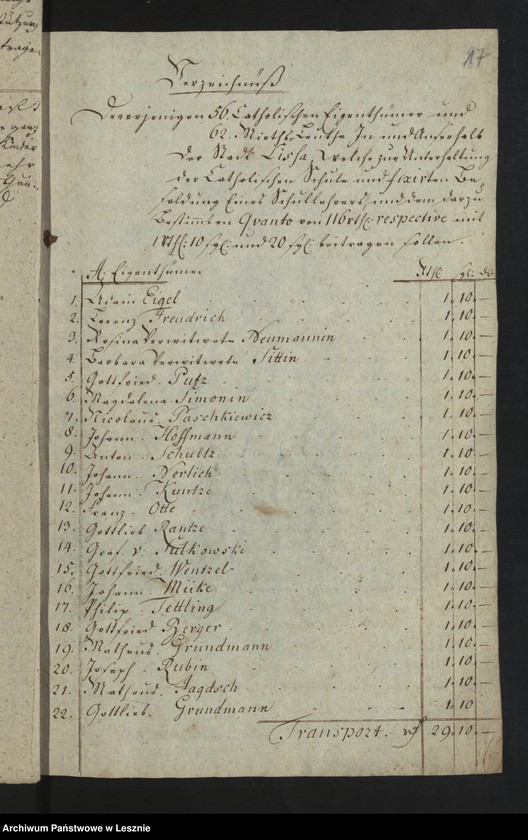 187
Verzeichnüß
Dererjenigen 56. Catholischen Eigenthümer und
62. Mieths Leuthe In und Auserhalb
der Stadt Lissa, welche zur Unterhaltung
der Catholischen Schule und fixirten Be
soldung Eines Schullehrers, und dem darzu
Bestimmten Qvanto von 116 rthl: respective mit
1 Rthl: 10 sgl: und 20 sgl. beitragen sollen.
A: Eigenthümer Rthl sgl: d
1. Adam Eigel 1. 10. —
2. Lorenz Freudrich 1. 10. —
3. Rosina Verwitwete Neumannin 1. 10. —
4. Barbara Verwitwete Tittin 1. 10. —
5. Gottfried Putz 1. 10. —
6. Magdalena Simonin 1. 10. —
7. Nicolaus Paschkiewicz 1. 10. —
8. Johann Hoffmann 1. 10. —
9. Anton Schultz 1. 10. —
10. Johann Nerlich 1. 10. —
11. Johann Kuntze 1. 10. —
12. Franz Otte 1. 10. —
13. Gottlieb Rantze 1. 10. —
14. Graf v. Sulkowski 1. 10. —
15. Gottfried Wentzel 1. 10. —
16. Johann Mücke 1. 10. —
17. Philip Tettling 1. 10. —
18. Gottfried Berger 1. 10. —
19. Matheus Grundmann 1. 10. —
20. Joseph Rubin 1. 10. —
21. Matheus Jagdsch 1. 10. —
22. Gottlieb Grundmann 1. 10 —
Transport. 29. 10. —
Archiwum Państwowe w Lesznie